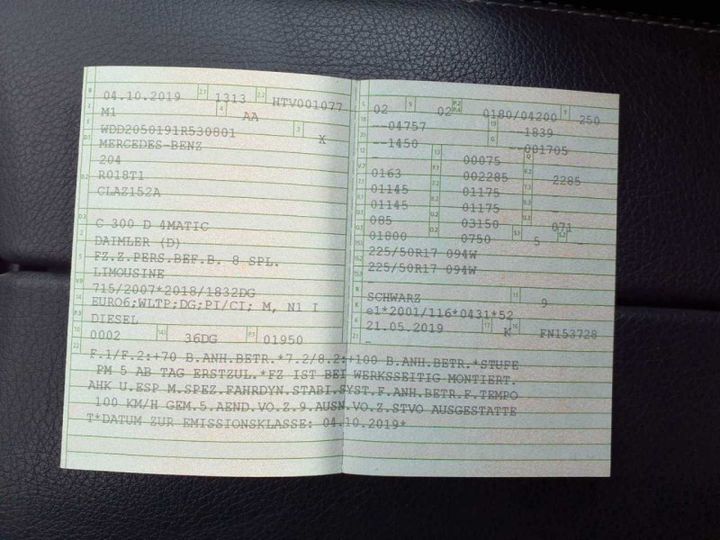 04.10.2019 1313 HTV001077
M1 AA
WDD2050191R530801 X
MERCEDES-BENZ
204
R018T1
CLAZ152A
C 300 D 4MATIC
DAIMLER (D)
FZ.Z.PERS.BEF.B. 8 SPL.
LIMOUSINE
715/2007*2018/1832DG
EURO6;WLTP;DG;PI/CI; M, N1 I
DIESEL
0002 36DG 01950
02 02 0180/04200 250
--04757 -1839
--1450 --001705
00075
0163 002285 2285
01145 01175
01145 01175
085 03150 071
01800 0750 5 -
225/50R17 094W
225/50R17 094W
SCHWARZ 9
e1*2001/116*0431*52
21.05.2019 K FN153728
-
F.1/F.2:+70 B.ANH.BETR.*7.2/8.2:+100 B.ANH.BETR.*STUFE
PM 5 AB TAG ERSTZUL.*FZ IST BEI WERKSSEITIG MONTIERT.
AHK U.ESP M.SPEZ.FAHRDYN.STABI.SYST.F.ANH.BETR.F.TEMPO
100 KM/H GEM.5.AEND.VO.Z.9.AUSN.VO.Z.STVO AUSGESTATTE
T*DATUM ZUR EMISSIONSKLASSE: 04.10.2019*